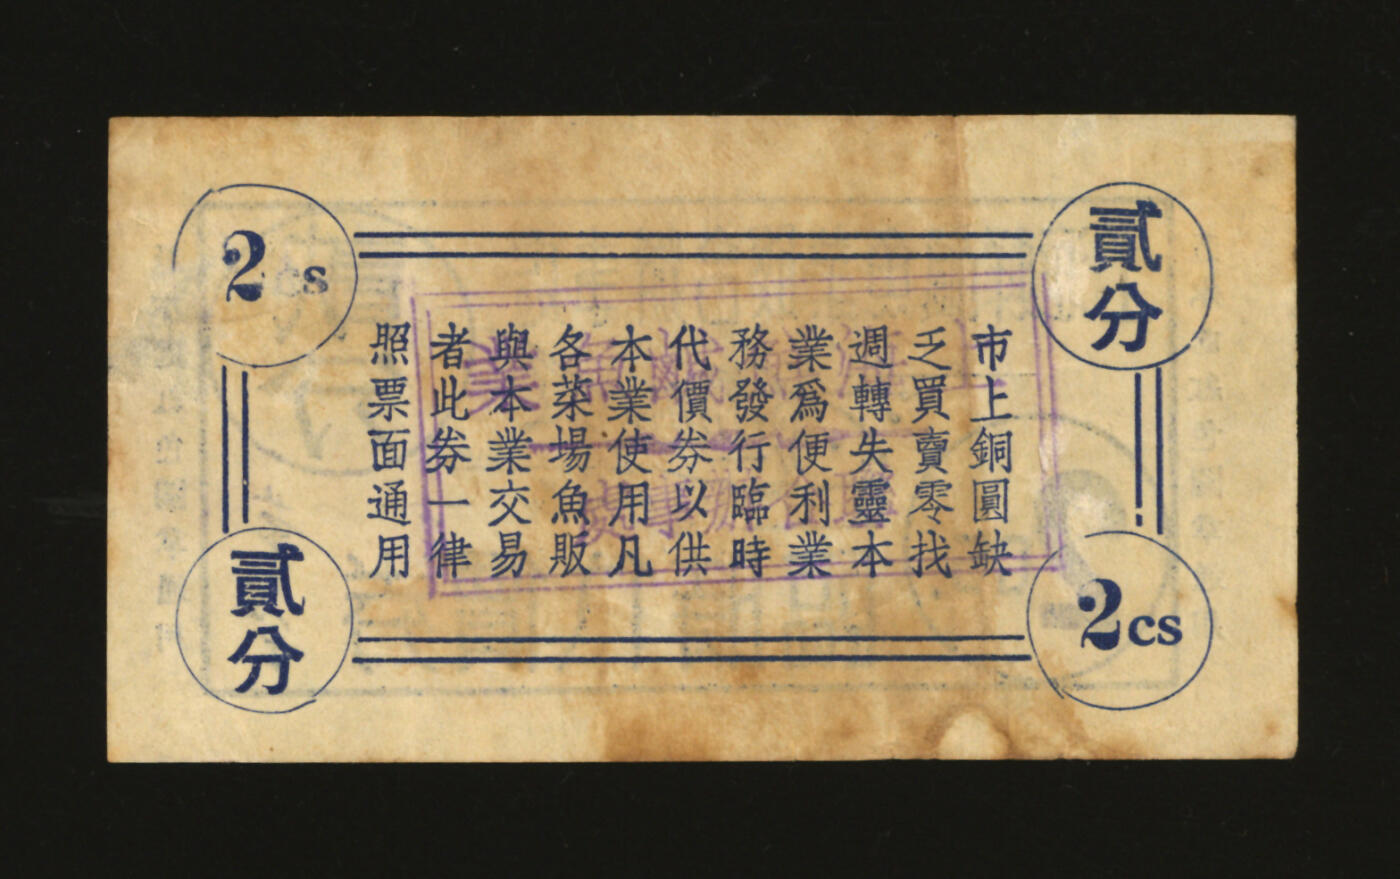 2 s
貳分
市上銅圓缺
乏買賣零找
週轉失靈本
業爲便利業
務發行臨時
代價券以供
本業使用凡
各菜場魚販
與本業交易
者此券一律
照票面通用
貳分
2cs